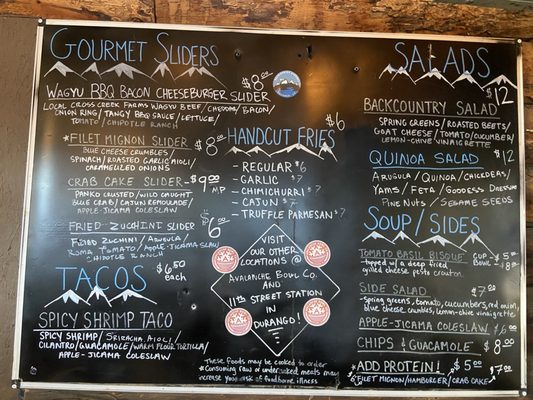 GOURMET SLIDERS
WAGYU BBQ BACON CHEESEBURGER SLIDER $8.00
LOCAL CROSS CREEK FARMS WAGYU BEEF / CHEDDAR / BACON /
ONION RING / TANGY BBQ SAUCE / LETTUCE /
TOMATO / CHIPOTLE RANCH
*FILET MIGNON SLIDER - $8.00
BLUE CHEESE CRUMBLES
SPINACH / ROASTED GARLIC AIOLI
CARAMELIZED ONIONS
CRAB CAKE SLIDER - $9.00 MP
PANKO CRUSTED / WILD CAUGHT
BLUE CRAB / CAJUN REMOULADE /
APPLE-JICAMA COLESLAW
FRIED ZUCCHINI SLIDER $6.00
FRIED ZUCHINI / ARUGULA /
ROMA TOMATO / APPLE-JICAMA SLAW /
CHIPOTLE RANCH
TACOS $6.50 each
SPICY SHRIMP TACO
SPICY SHRIMP / SRIRACHA AIOLI /
CILANTRO / GUACAMOLE / WARM FLOUR TORTILLA /
APPLE-JICAMA COLESLAW
HANDCUT FRIES $6
- REGULAR $6
- GARLIC $7
- CHIMICHURRI $7
- CAJUN $7
- TRUFFLE PARMESAN $7
VISIT
OUR OTHER
LOCATIONS @
AVALANCHE BOWL CO.
AND
11th STREET STATION
IN
DURANGO!
*These foods may be cooked to order
*Consuming raw or undercooked meats may
increase your risk of foodborne illness
SALADS
$12
BACKCOUNTRY SALAD
SPRING GREENS / ROASTED BEETS /
GOAT CHEESE / TOMATO / CUCUMBER /
LEMON-CHIVE VINAIGRETTE
QUINOA SALAD $12
ARUGULA / QUINOA / CHICKPEAS /
YAMS / FETA / GODDESS DRESSING
PINE NUTS / SESAME SEEDS
SOUP/SIDES
TOMATO BASIL BISQUE CUP - $5.00
- topped w/ a deep fried BOWL - $8
grilled cheese pesto crouton
SIDE SALAD $7.00
- Spring greens, tomato, cucumbers, red onion,
blue cheese crumbles, lemon-chive vinaigrette
APPLE-JICAMA COLESLAW $6
CHIPS & GUACAMOLE - $8.00
*ADD PROTEIN! $5.00
*FILET MIGNON / HAMBURGER / CRAB CAKE $7.00